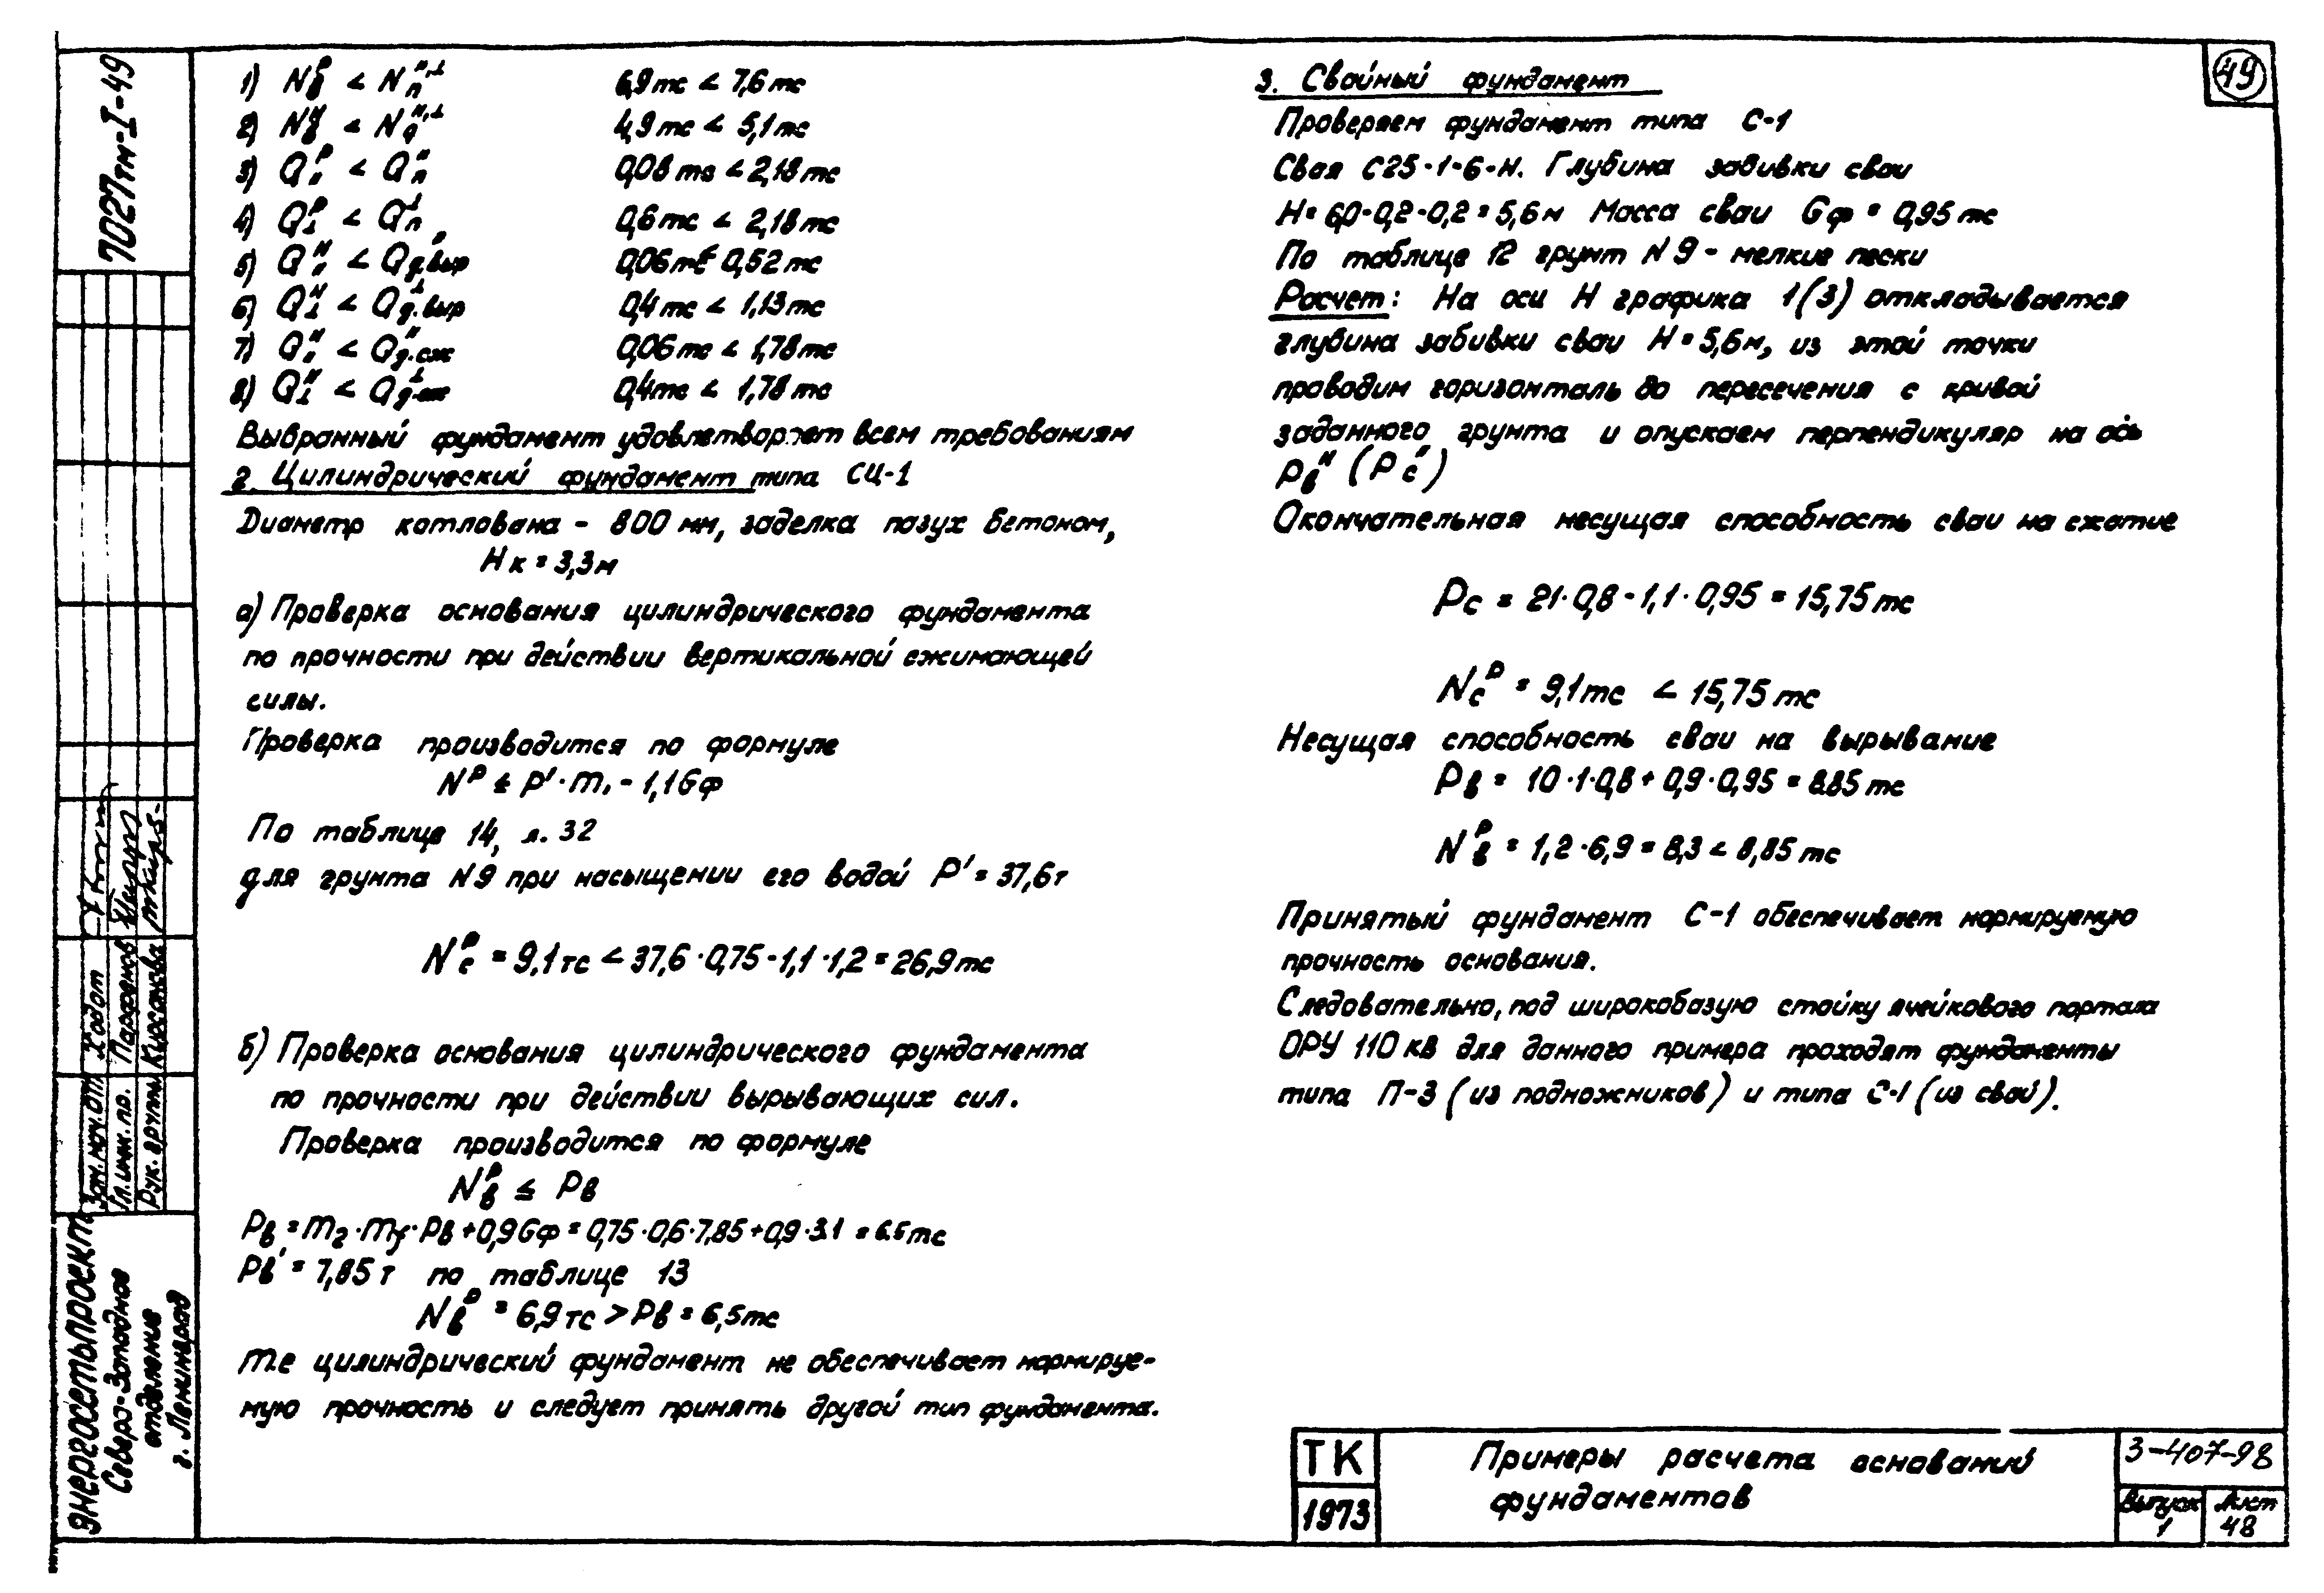 1) Nвᴾ < Nпᴴ,⊥ 6,9тс < 7,6тс
2) Nвᴴ < Nдᴴ,⊥ 4,9тс < 5,1тс
3) Q₁₁ᴾ < Qпᴵᴵ 0,08тс < 2,18тс
4) Q⊥ᴾ < Qп⊥ 0,6тс < 2,18тс
5) Q₁₁ᴴ < Qд.выр 0,06тс < 0,52тс
6) Q⊥ᴴ < Qд.выр⊥ 0,4тс < 1,13тс
7) Q₁₁ᴴ < Qд.сжᴵᴵ 0,06тс < 1,78тс
8) Q⊥ᴴ < Qд.сж⊥ 0,4тс < 1,78тс
Выбранный фундамент удовлетворяет всем требованиям
2. Цилиндрический фундамент типа СЦ-1
Диаметр котлована - 800 мм, заделка пазух бетоном,
Нк = 3,3м
а) Проверка основания цилиндрического фундамента
по прочности при действии вертикальной сжимающей
силы.
Проверка производится по формуле
Nᴾ ≤ P'·m, - 1,1Gф
По таблице 14, л. 32
для грунта N9 при насыщении его водой P' = 37,6т
Nсᴾ = 9,1тс < 37,6·0,75-1,1·1,2 = 26,9тс
б) Проверка основания цилиндрического фундамента
по прочности при действии вырывающих сил.
Проверка производится по формуле
Nвᴾ ≤ Pв
Pв = m₂·mγ·Pв + 0,9Gф = 0,75·0,6·7,85+0,9·3.1 = 6.5тс
Pв' = 7,85т по таблице 13
Nвᴾ = 6,9тс > Pв = 6,5тс
т.е цилиндрический фундамент не обеспечивает нормируе-
мую прочность и следует принять другой тип фундамента.
3. Свайный фундамент
Проверяем фундамент типа С-1
Свая С25-1-6-Н. Глубина забивки сваи
Н = 6,0-0,2-0,2 = 5,6м Масса сваи Gф = 0,95 тс
По таблице 12 грунт N9 - мелкие пески
Расчет: На оси Н графика 1(3) откладывается
глубина забивки сваи Н = 5,6м, из этой точки
проводим горизонталь до пересечения с кривой
заданного грунта и опускаем перпендикуляр на ось
Pвᴴ (Pс')
Окончательная несущая способность сваи на сжатие
Pс = 21·0,8 - 1,1·0,95 = 15,75тс
Nсᴾ = 9,1тс < 15,75тс
Несущая способность сваи на вырывание
Pв = 10·1·0,8 + 0,9·0,95 = 8.85 тс
Nвᴾ = 1,2·6,9 = 8,3 < 8,85тс
Принятый фундамент С-1 обеспечивает нормируемую
прочность основания.
Следовательно, под широкобазую стойку ячейкового портала
ОРУ 110 кв для данного примера проходят фундаменты
типа П-3 (из подножников) и типа С-1 (из свай).
49
7027тм-I-49
Зам.нач.от. Ходот
Гл.инж.пр. Парфенов
Рук. группы Кирсанова
Энергосетьпроект
Северо-Западное
отделение
г. Ленинград
ТК
1973
Примеры расчета оснований
фундаментов
3-407-98
Выпуск
1
Лист
48